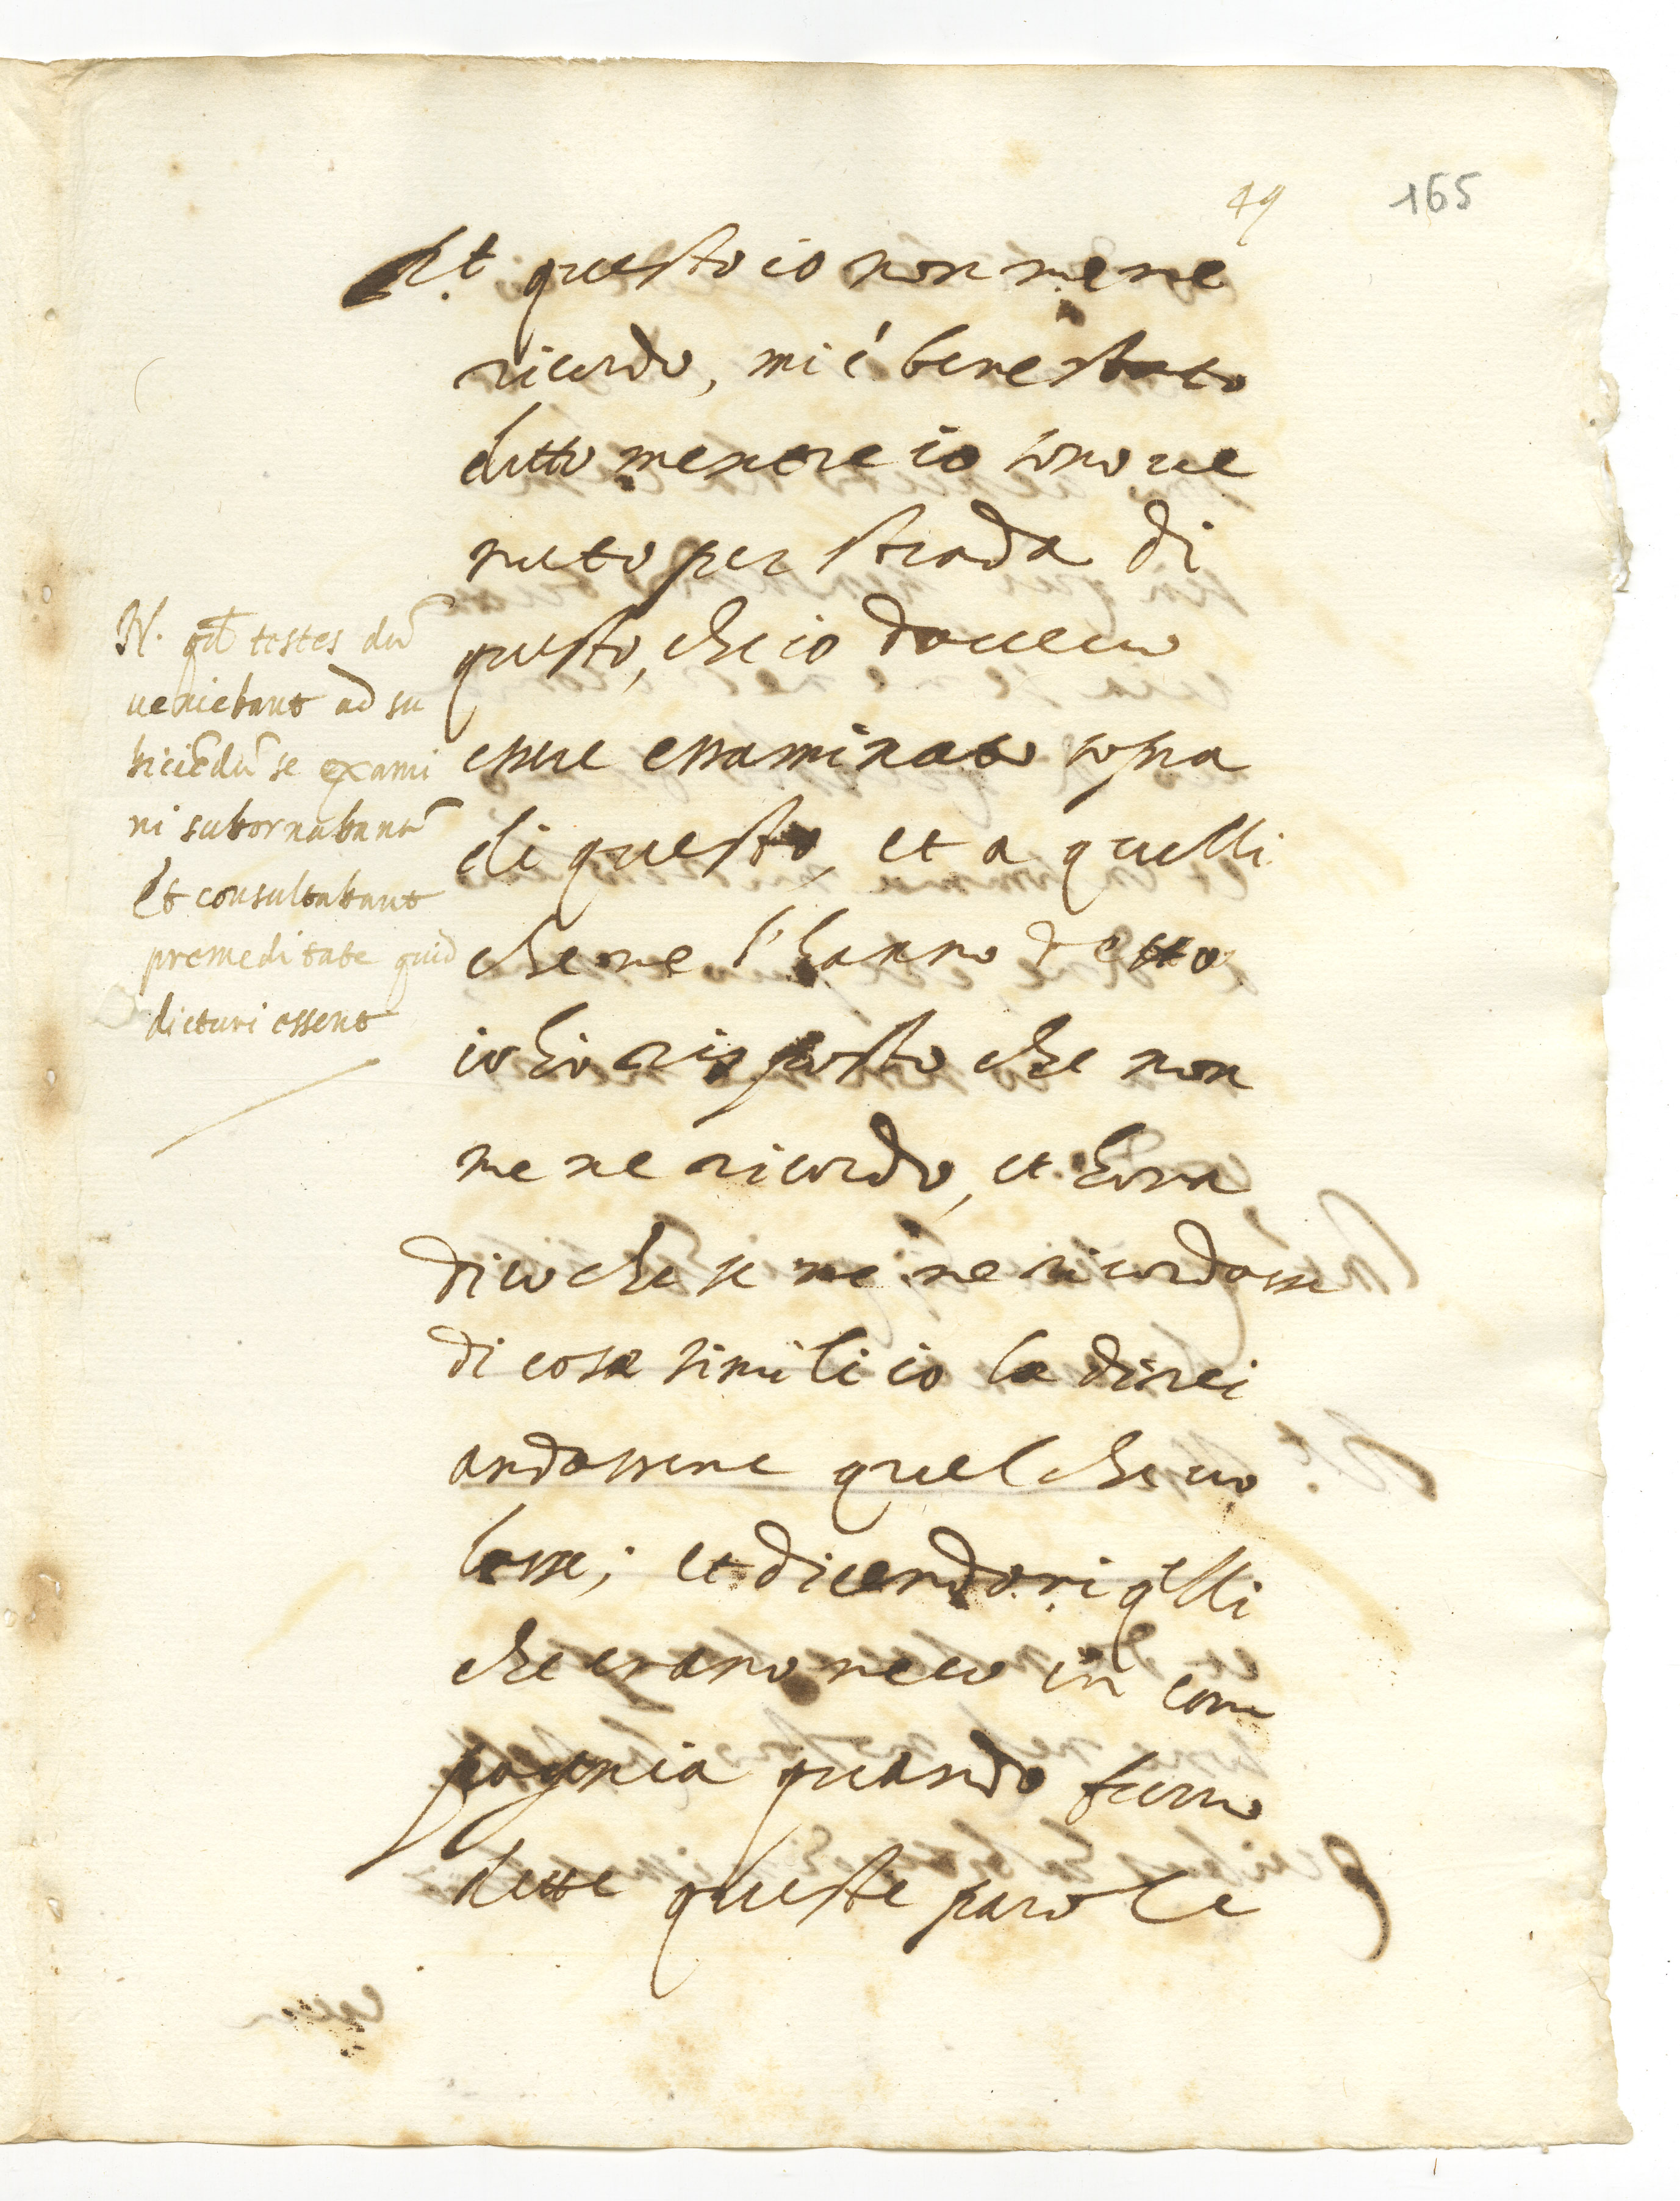 49
165
R.t questo io non me ne
ricordo, mi é bene stato
detto mentre io sono ve
nuto per strada di
questo, che io doveuo
essere essaminato sopra
di questo, et a quelli
che me l'hanno detto
io ho risposto che non
me ne ricordo, et hora
dico che se me ne ricordasse
di cosa simili io la direi
andassene quel che vo
lesse; et dicendomi q.elli
che erano meco in com
pagnia quando furno
dette queste parole
N. qd testes dū
ueniebant ad su
biiciēdū se exami
ni subornabant̄
et consultabant
premeditate quid
dicturi essent